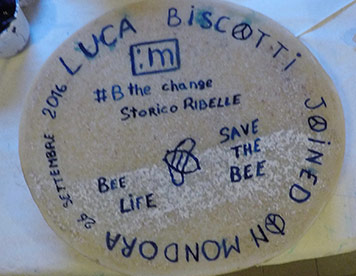 LUCA BiSCOTTi JOiNED ON MONDORA 26 SETTEMBRE 2016
:m
#B the change
STORiCO RiBELLE
SAVE
THE
BEE
BEE
LiFE